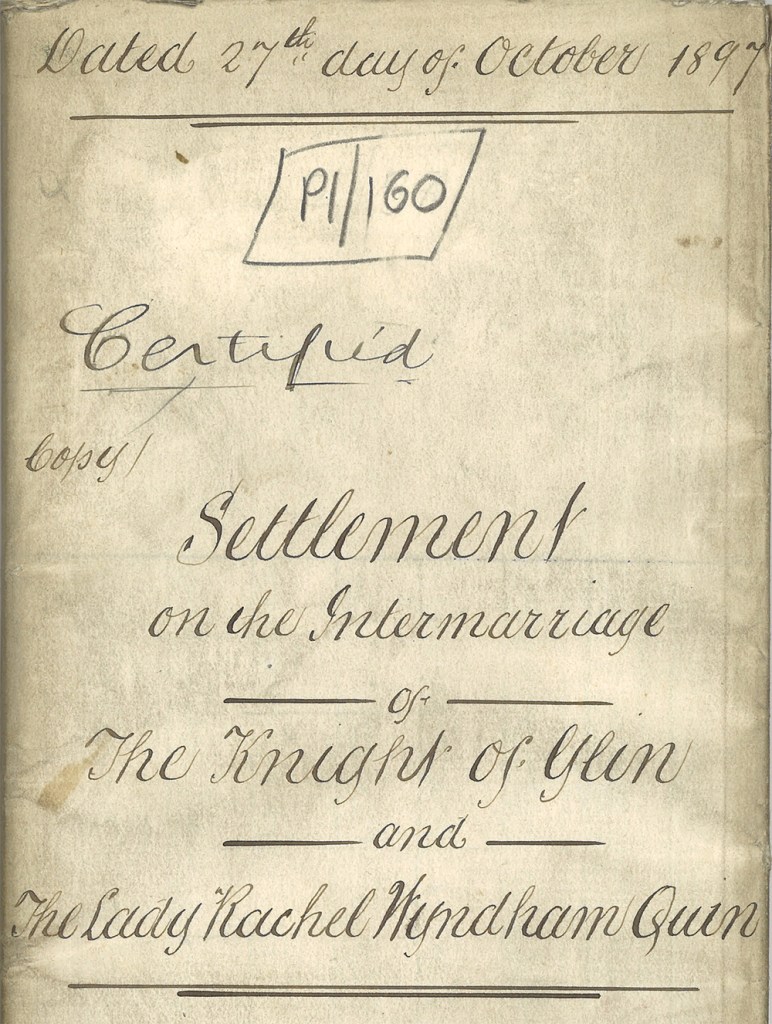 Dated 27th day of October 1897
P1/160
Certified
Copy/
Settlement
on the Intermarriage
of
The Knight of Glin
and
The Lady Rachel Wyndham Quin